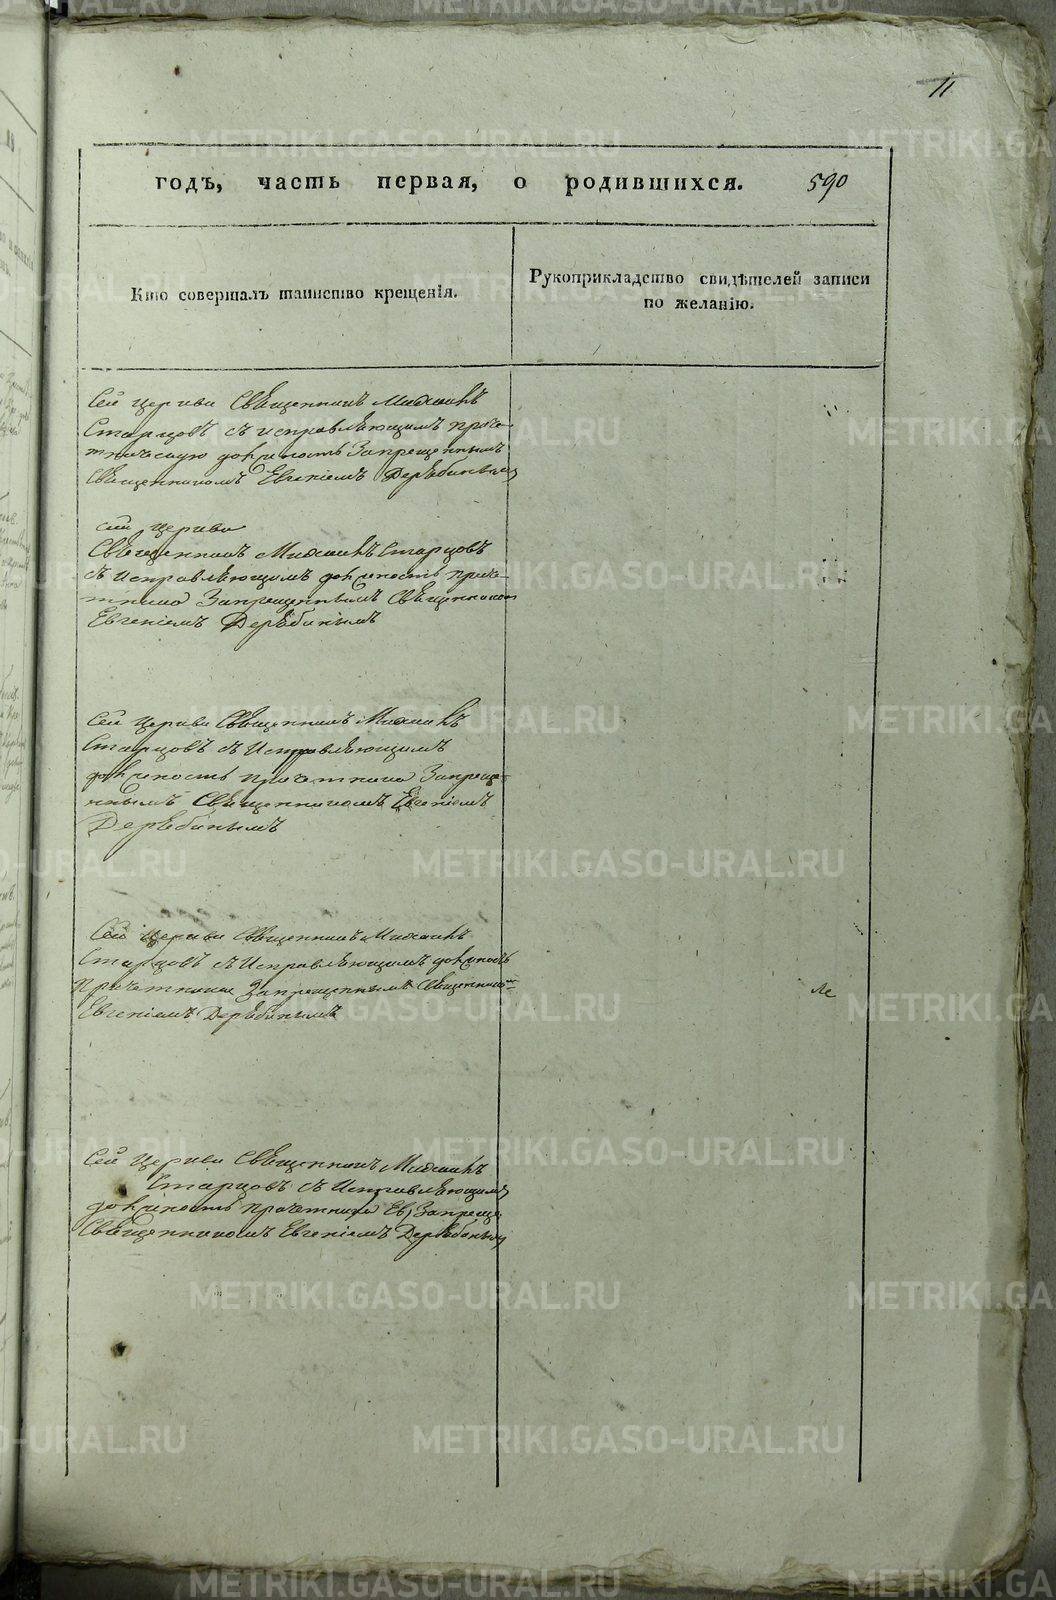 11
годъ, часть первая, о родившихся. 590
Кто совершалъ таинство крещенія.
Рукоприкладство свидѣтелей записи
по желанію.
Сей церкви Священникъ Михаилъ
Старцовъ съ исправляющимъ приче-
тническую должность Запрещеннымъ
Священникомъ Евгеніемъ Дерябинымъ
Сей церкви
Священникъ Михаилъ Старцовъ
съ исправляющимъ должность приче-
тника Запрещеннымъ Священникомъ
Евгеніемъ Дерябинымъ
Сей церкви Священникъ Михаилъ
Старцовъ съ Исправляющимъ
должность причетника Запреще-
ннымъ Священникомъ Евгеніемъ
Дерябинымъ
Сей церкви Священникъ Михаилъ
Старцовъ съ Исправляющимъ должность
Причетника Запрещеннымъ Священником
Евгеніемъ Дерябинымъ
Сей Церкви Священникъ Михаилъ
Старцовъ съ Исправляющимъ
должность причетника Запреще
Священникомъ Евгеніемъ Дерябинымъ
METRIKI.GASO-URAL.RU